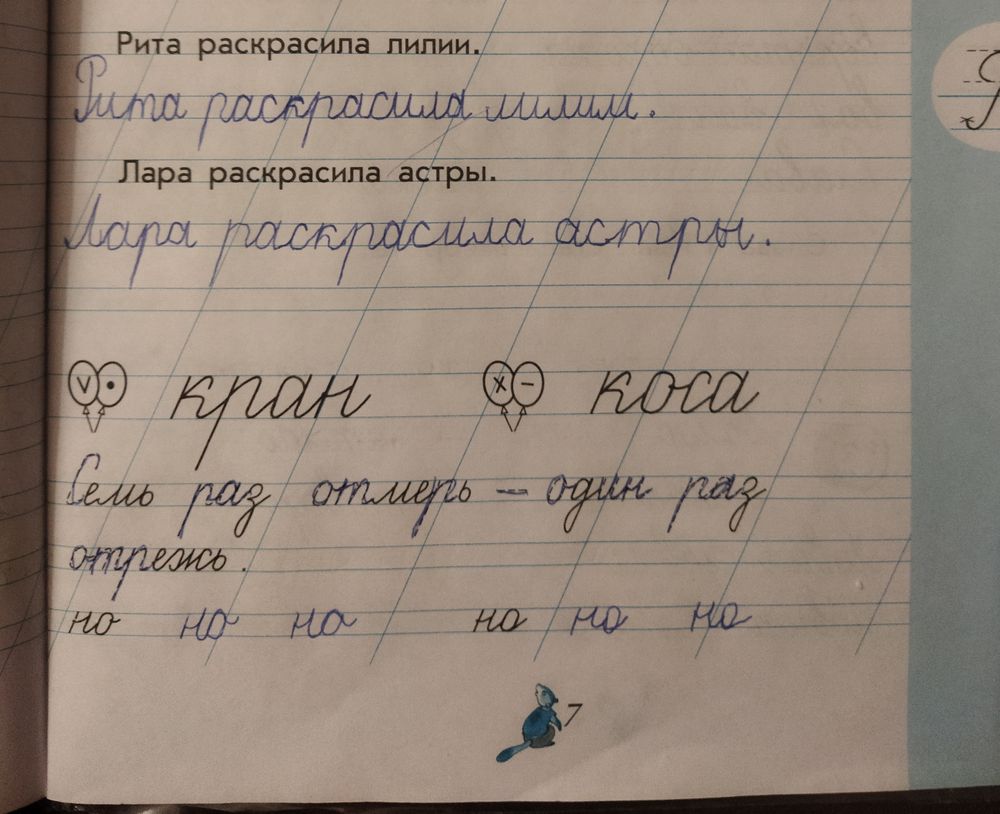 Рита раскрасила лилии.
Рита раскрасила лилии.
Лара раскрасила астры.
Лара раскрасила астры.
кран коса
Семь раз отмерь – один раз
отрежь.
но но но но но но
7